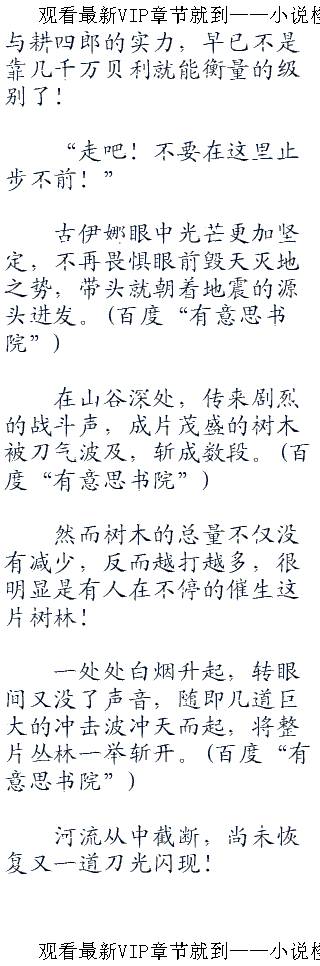 观看最新VIP章节就到——小说
与耕四郎的实力，早已不是
靠几千万贝利就能衡量的级
别了！
“走吧！不要在这里止
步不前！”
古伊娜眼中光芒更加坚
定，不再畏惧眼前毁天灭地
之势，带头就朝着地震的源
头进发。(百度“有意思书
院”)
在山谷深处，传来剧烈
的战斗声，成片茂盛的树木
被刀气波及，斩成数段。(百
度“有意思书院”)
然而树木的总量不仅没
有减少，反而越打越多，很
明显是有人在不停的催生这
片树林！
一处处白烟升起，转眼
间又没了声音，随即几道巨
大的冲击波冲天而起，将整
片丛林一举斩开。(百度“有
意思书院”)
河流从中截断，尚未恢
复又一道刀光闪现！
观看最新VIP章节就到——小说